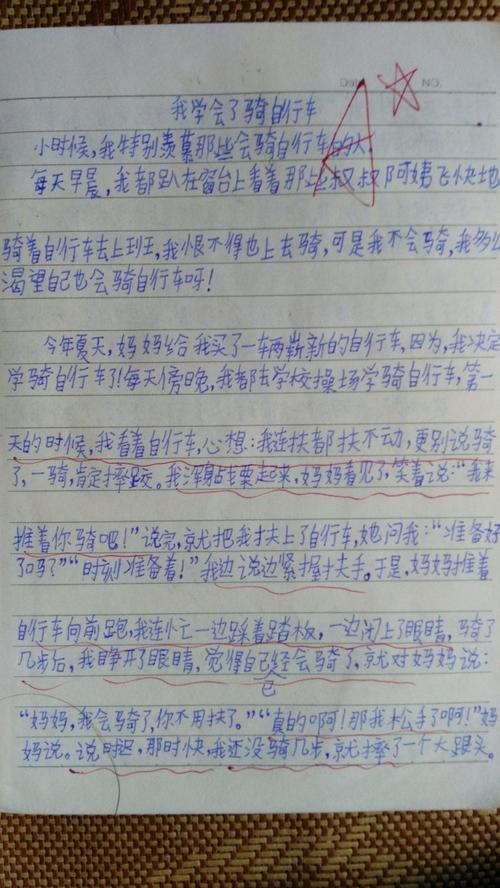 我学会了骑自行车
小时候,我特别羡慕那些会骑自行车的大
每天早晨,我都趴在窗台上看着那些叔叔阿姨飞快地
骑着自行车去上班,我恨不得也上去骑,可是我不会骑,我多么
渴望自己也会骑自行车呀!
今年夏天,妈妈给我买了一车两崭新的自行车,因为,我决定
学骑自行车了!每天傍晚,我都去学校操场学骑自行车,第一
天的时候,我看着自行车,心想:我连扶都扶不动,更别说骑
了,一骑,肯定摔跤。我浑身战栗起来,妈妈看见了,笑着说:“我来
推着你骑吧!”说完,就把我扶上了自行车,她问我:“准备好
了吗?”“时刻准备着!”我边说边紧握扶手。于是,妈妈推着
自行车向前跑,我连忙一边踩着踏板,一边闭上了眼睛,骑了
几步后,我睁开了眼睛,觉得自己经会骑了,就对妈妈说:
已
“妈妈,我会骑了,你不用扶了。”“真的啊!那我松手了啊!”妈
妈说。说时迟,那时快,我还没骑几步,就摔了一个大跟头。